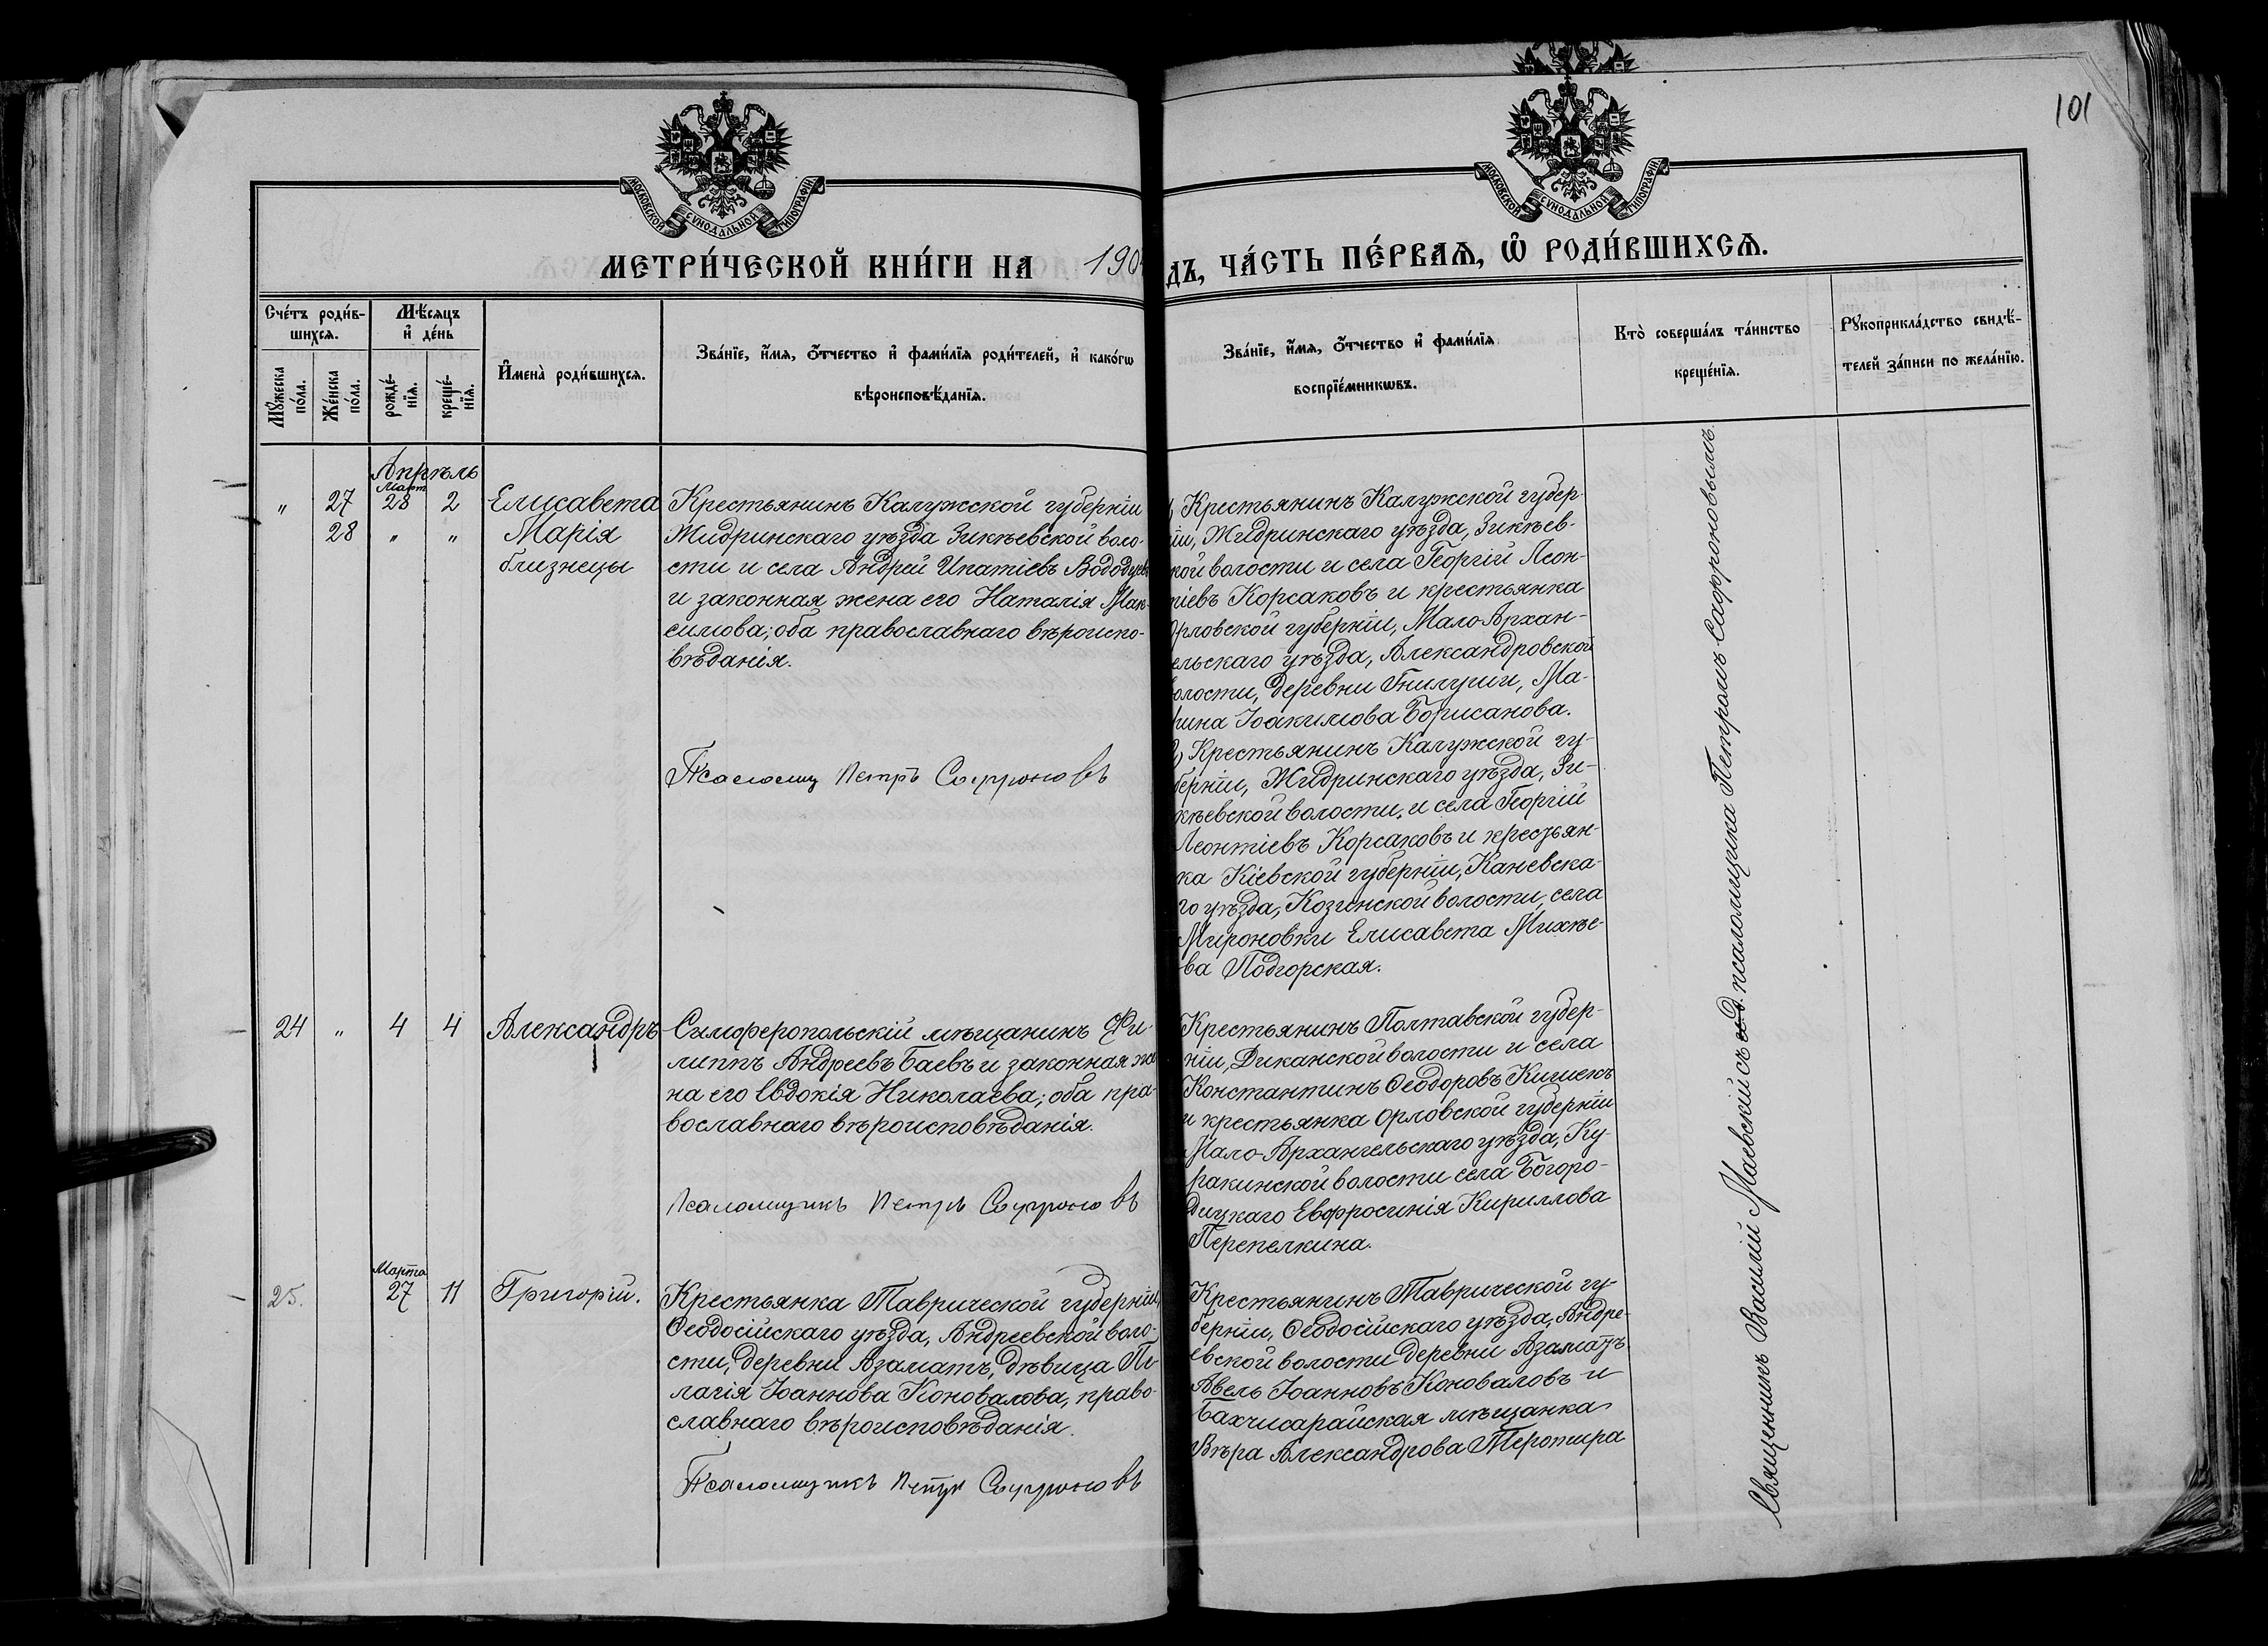 101
МОСКОВСКОЙ СѴНОДАЛЬНОЙ ТИПОГРАФІИ
МОСКОВСКОЙ СѴНОДАЛЬНОЙ ТИПОГРАФІИ
МЕТРИ́ЧЕСКОЙ КНИ́ГИ НА 190
ДЪ, ЧА́СТЬ ПЕ́РВАѦ, Ѽ РОДИ́ВШИХСѦ.
Сче́тъ роди́в-
шихсѧ.
Мꙋ́жеска
по́ла.
Же́нска
по́ла.
Мѣ́сѧцъ
и҆ де́нь
рожде́-
нїѧ.
креще́-
нїѧ.
И҆мена̀ роди́вшихсѧ.
Зва́нїе, и҆́мѧ, ѻ҆́тчество и҆ фами́лїѧ роди́телей, и҆ како́гѡ
вѣроисповѣ́данїѧ.
Зва́нїе, и҆́мѧ, ѻ҆́тчество и҆ фами́лїѧ
воспрїе́мникѡвъ.
Кто̀ соверша́лъ та́инство
креще́нїѧ.
Рꙋкоприкла́дство свидѣ́-
телей за́писи по жела́нїю.
Апрѣль
Март
" 27 28 2 Елисавета
28 " " Марія
близнецы
Крестьянинъ Калужской губерніи
Жидринскаго уѣзда Зикѣевской воло-
сти и села Андрей Ипатіевъ
и законная жена его Наталія Мак-
симова; оба православнаго вѣроиспо-
вѣданія.
Псаломщ Петръ Сафроновъ
Крестьянинъ Калужской губер-
ніи, Жидринскаго уѣзда, Зикѣев-
кой волости и села Георгій Леон-
тіевъ Корсаковъ и крестьянка
Орловской губерніи, Мало-Архан-
ельскаго уѣзда, Александровской
волости, деревни Гнилуши, Ма-
рина Іоакимова Борисанова.
2) Крестьянинъ Калужской гу-
берніи, Жидринскаго уѣзда, Зи-
кѣевской волости, и села Георгій
Леонтіевъ Корсаковъ и крестьян-
ка Кіевской губерніи, Каневска-
го уѣзда, Козинской волости, села
Мироновки Елисавета Михѣе-
ва Подгорская.
24 " 4 4 Александръ
Симферопольскій мѣщанинъ Фи-
липпъ Андреевъ Баевъ и законная же
на его Евдокія Николаева; оба пра-
вославнаго вѣроисповѣданія.
Псаломщикъ Петръ Сафроновъ
Крестьянинъ Полтавской губер-
ніи, Диканской волости и села
Константинъ Ѳеодоровъ Кишекъ
и крестьянка Орловской губерніи
Мало-Архангельскаго уѣзда, Ку-
ракинской волости села Богоро-
дицкаго Евфросинія Кириллова
Перепелкина.
Марта
25. 27 11 Григорій.
Крестьянка Таврической губерніи,
Ѳеодосійскаго уѣзда, Андреевской воло-
сти, деревни Азаматъ, дѣвица Пе-
лагія Іоаннова Коновалова, право-
славнаго вѣроисповѣданія.
Псаломщикъ Петръ Сафроновъ
Крестьянинъ Таврической гу-
берніи, Ѳеодосійскаго уѣзда, Андре-
евской волости деревни Азаматъ
Авель Іоанновъ Коноваловъ и
Бахчисарайская мѣщанка
Вѣра Александрова
Священникъ Василій Маевскій съ и. д. псаломщика Петромъ Сафроновымъ.